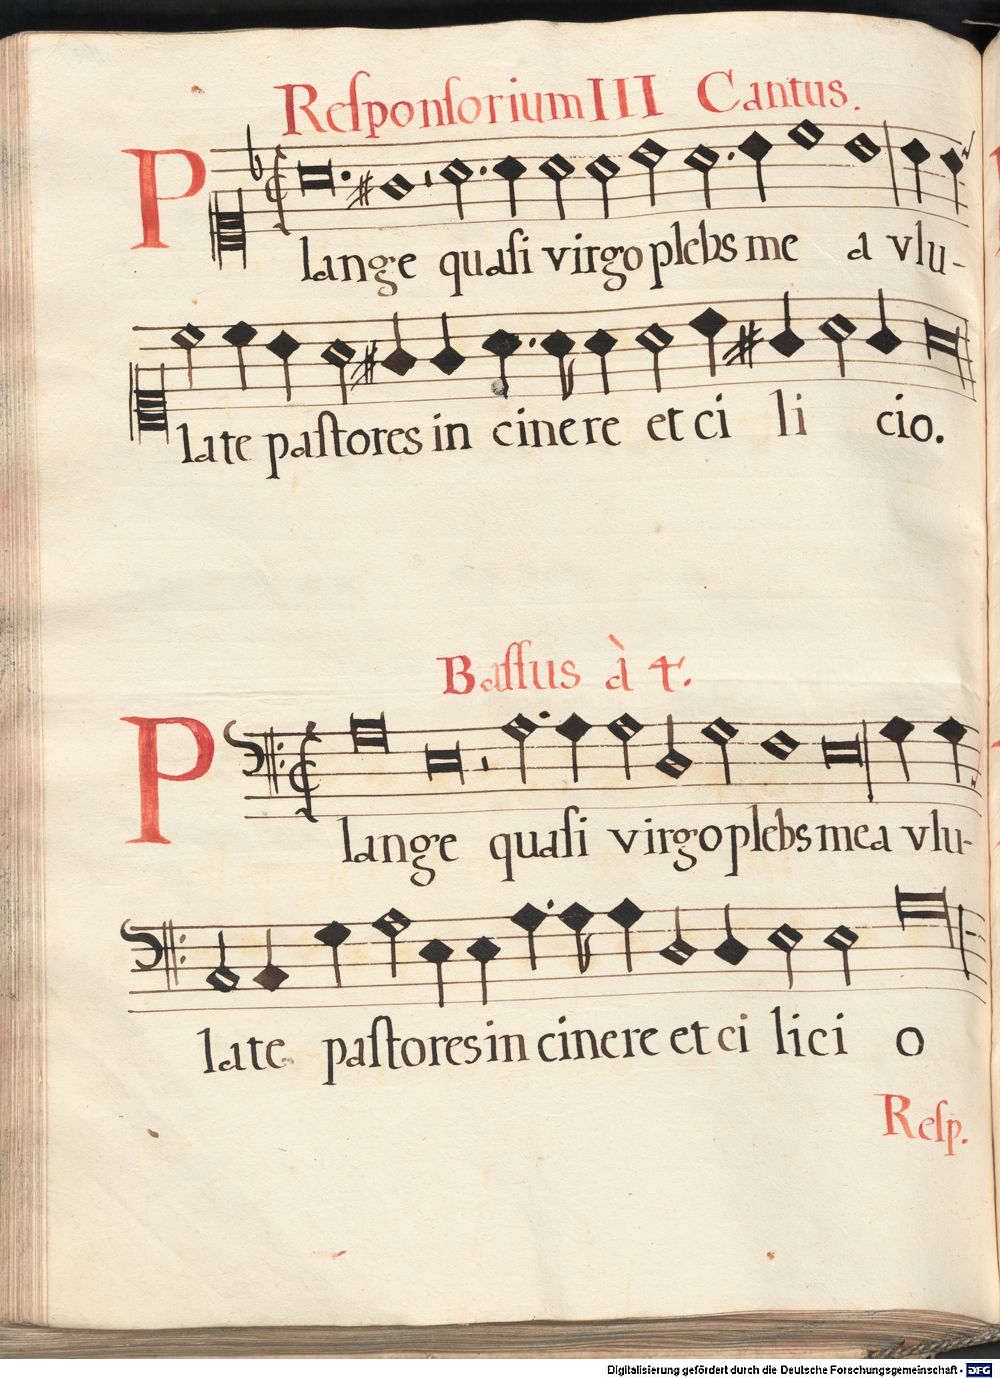 Reſponſorium III Cantus.
Plange quaſi virgo plebs me a vlu-
late paſtores in cinere et ci li cio.
Baſſus à 4.
Plange quaſi virgo plebs mea vlu-
late paſtores in cinere et ci lici o
Reſp.
Digitalisierung gefördert durch die Deutsche Forschungsgemeinschaft - DFG